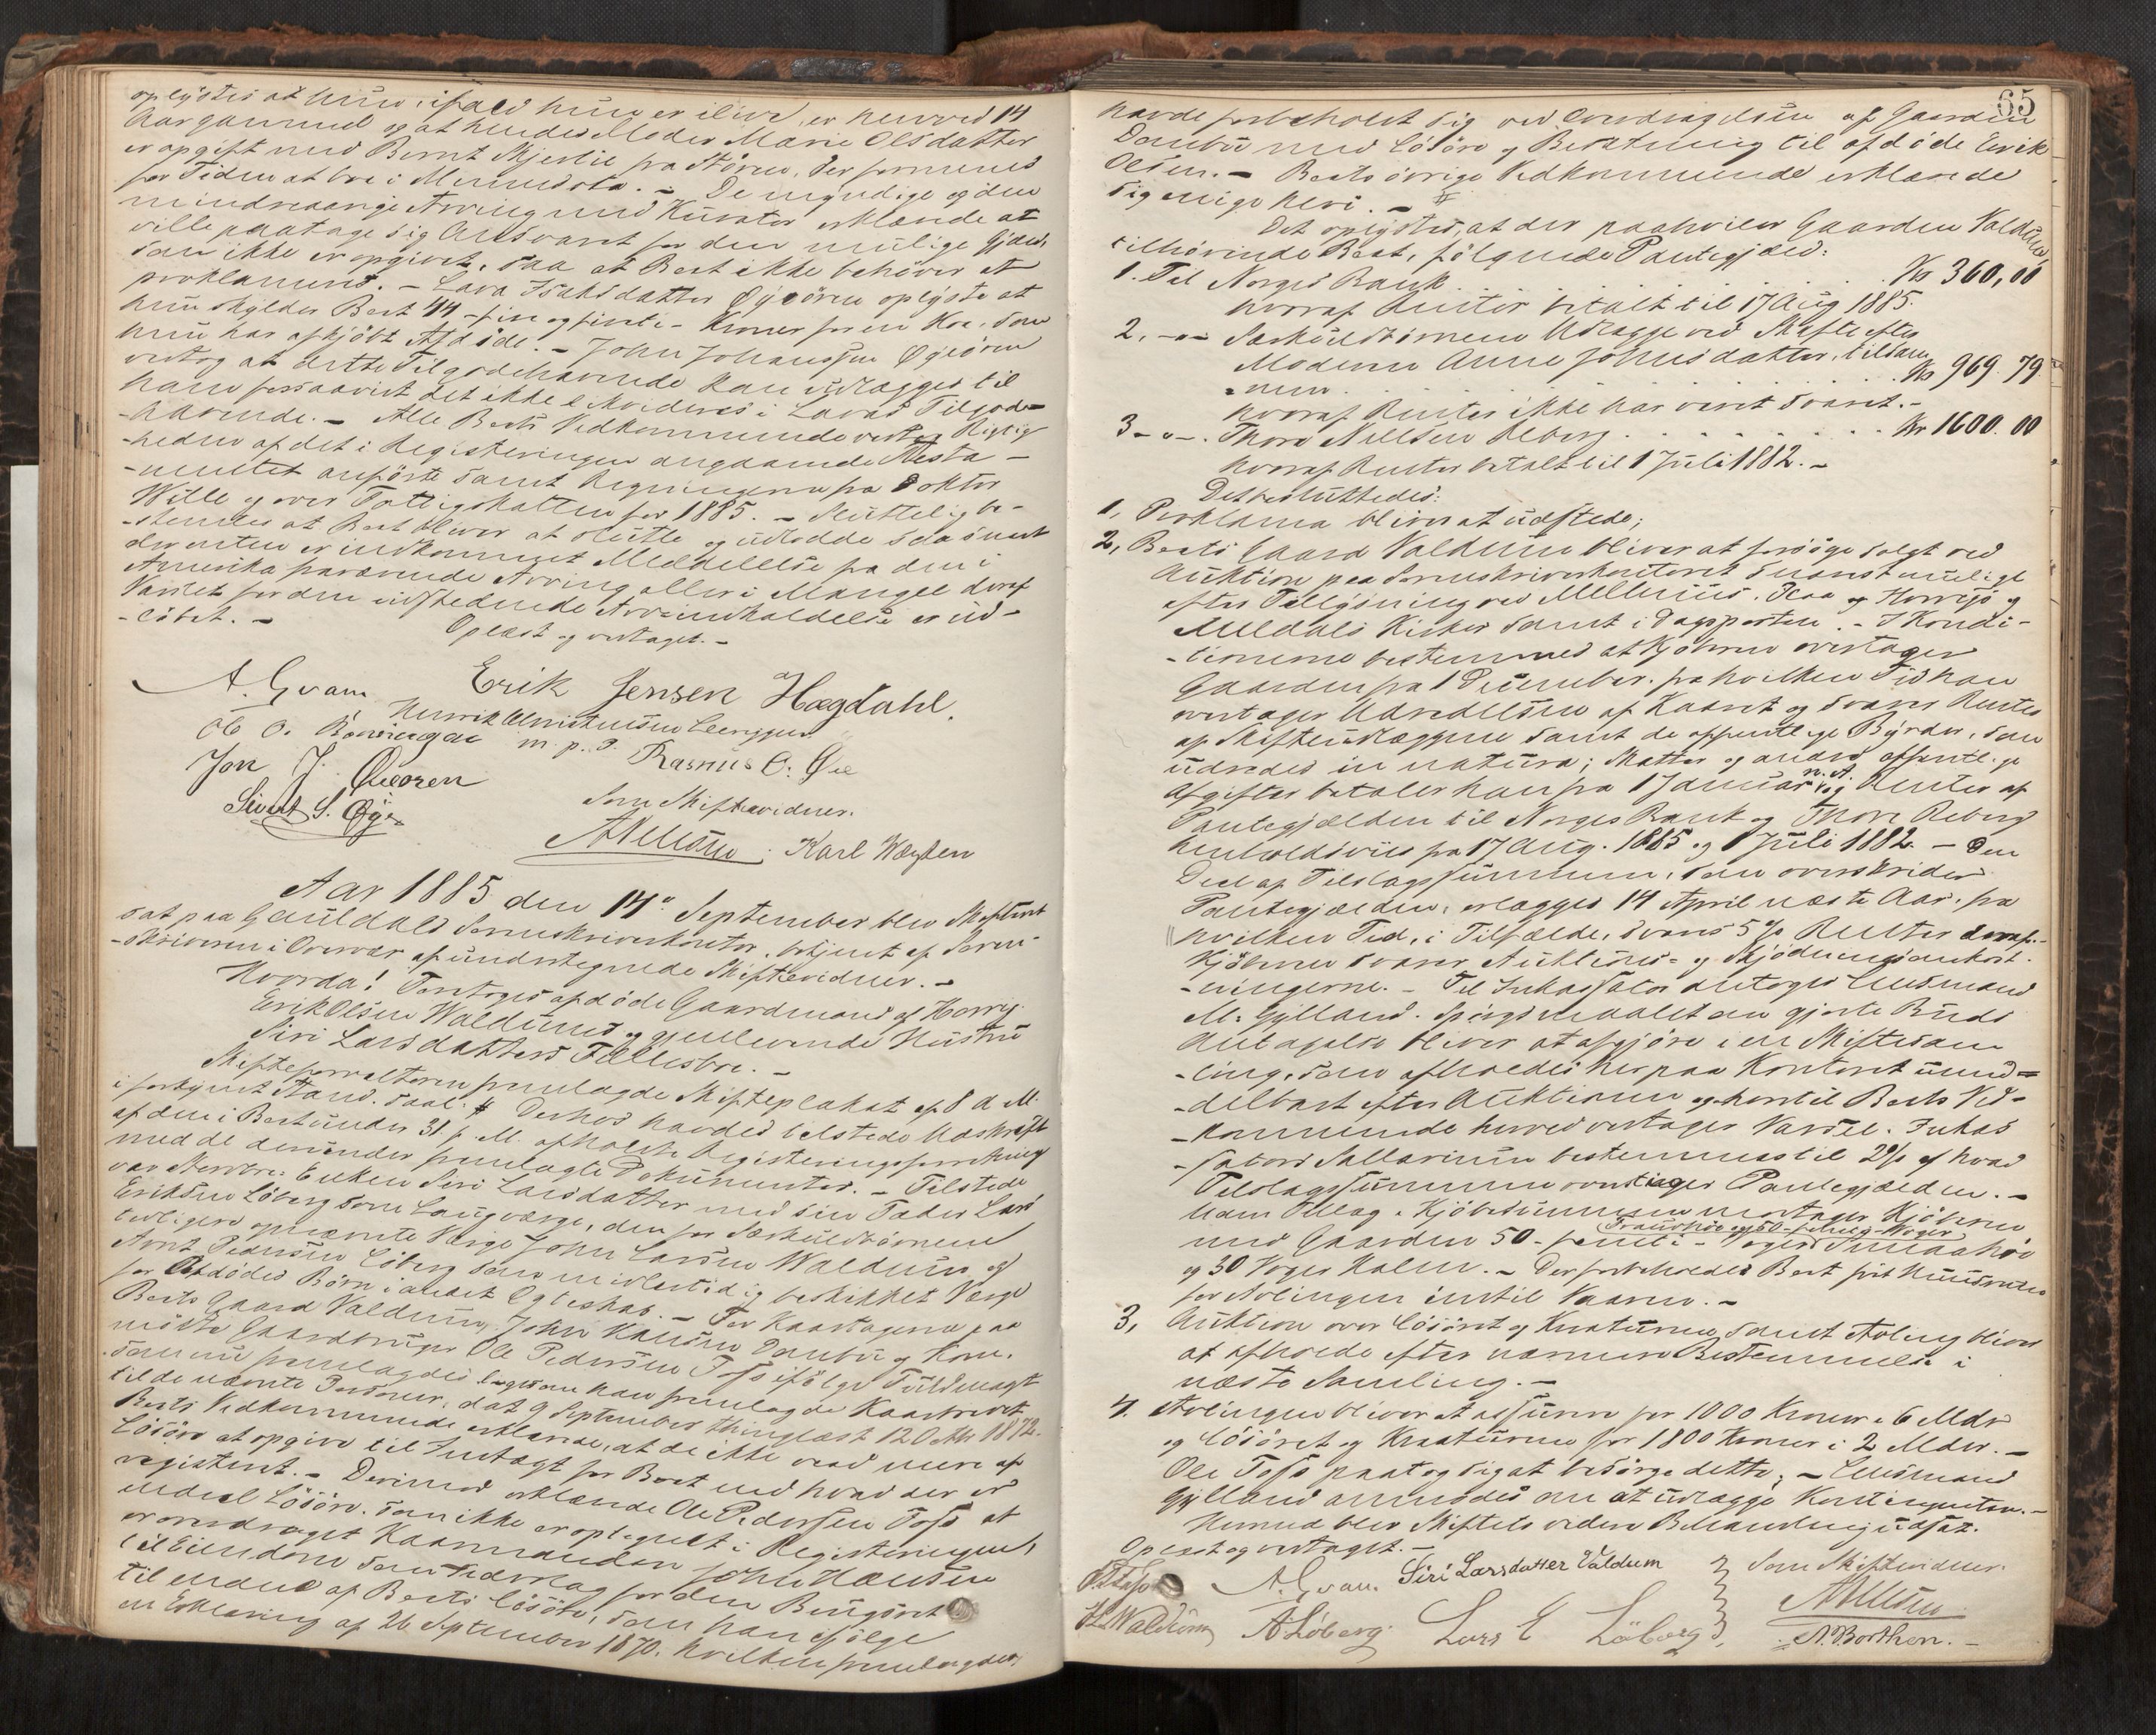 oplystes at hun, ifald hun er ilive, er henved 14
Aar gammel og at hendes Moder Marie Olsdatter
er opgift med Bernt Mjerlie fra Støren, der formenes
for Tiden at bo i Minnesota. - De myndige og den
mindreaarige Arving med Kurator erklærede at
ville paatage sig Ansvaret for den mulige Gjæld,
som ikke er opgivet, saa at Boet ikke behøver at
proklameres. - Lava Isaksdatter Øyeøren oplyste at
hun skylder Boet 44 - fire og firti - Kroner for en Ko, som
hun har afkjøbt Afdøde. - John Johanssen Øyeøren
vedtog at dette Tilgodehavende kan udlægges til
ham forsaavidt det ikke likvideres i Lavas Tilgode-
havende. - Alle Boets Vedkommende vedtog Rigtig-
heden af det i Registreringen angaaende Testa-
-mentet anførte samt Regningerne fra Doktor
Wille og over Fattigskatten for 1885. - Sluttelig be-
-stemtes at Boet bliver at slutte og udlodde saasnart
der enten er indkommet Meddelelse fra den i
Amerika fraværende Arving eller i Mangel deraf
Varslet for den udstedende Arveindkaldelse er ud-
-løbet. -
Oplæst og vedtaget. -
A. Gvam Erik Jensen Hægdahl.
Henrik Christensen
Ole O. m. p. P. Rasmus O. Øie
Jon J. Øieøren
Sivert S. Øye Som Skiftevidner.
A Nilsen Karl
Aar 1885 den 14de September blev Skifteret
sat paa Gauldals Sorenskriverkontor, betjent af Soren-
-skriveren i Overvær af undertegnede Skiftevidner. -
Hvorda! Foretoges afdøde Gaardmand af Horrig
Erik Olsen Waldums og gjenlevende Hustru
Siri Larsdatters Fællesbo. -
Skifteforvalteren fremlagde Skifteplakat af 8 d. M.
i forkyndt Stand. saal: # Derhos havdes tilstede Udskrift
af den i Boet under 31 f. M. afholdte Registreringsforretning
med de derunder fremlagte Dokumenter. - Tilstede
var Nervbr: Enken Siri Larsdatter med sin Fader Lars
Eriksen Løberg som Laugværge, den for Særkuldbørnene
tidligere opnævnte Værge John Larsen Waldum og
Arnt Pedersen Løberg som midlertidig beskikket Værge
for Afdødes Børn i andet Ægteskab. - For Kaartagerne paa
Boets Gaard Valdum, John Hansen Daubu og Kone,
mødte Gaardbruger Ole Pedersen Foss ifølge Fuldmagt
som nu fremlagdes ligesom han fremlagde Kaarbrevet
til de nævnte Personer, dat. 9 September thinglæst 12 Oktb 1872.
Boets Vedkommende erklærede, at de ikke vead mere af
Løsøre at opgive til Indtægt for Boet end hvad der er
registreret. - Derimod erklærede Ole Pedersen Foss at
endeel Løsøre, som ikke er optegnet i Registreringen,
er overdraget Kaarmanden John Hansen
til Eiendom som Vederlag for den Brugsret
til endeel af Boets Løsøre, som han ifølge
en Erklæring af 26 September 1870, hvilken fremlagdes,
65
havde forbeholdt sig ved Overdragelsen af Gaarden
Daubu med Løsøre og Besætning til afdøde Erik
Olsen. - Boets øvrige Vedkommende erklærede
sig enige heri. -
Det oplystes, at der paahviler Gaarden Valdum,
tilhørende Boet, følgende Pantegjæld:
1. Til Norges Bank . . . Kr 360,00
hvoraf Renter betalt til 17 Aug 1885.
2. -"- Særkuldbørnene Udlægge ved Skifte efter
Moderen Anne Johnsdatter, tilsam
=men . . . Kr 969. 79
hvoraf Renter ikke har været svaret. -
3 -"-. Thore Nielsen Reberg . . . Kr 1600. 00
hvoraf Renter betalt til 1 Juli 1882. -
Det besluttedes:
1, Proklama bliver at udstede;
2, Boets Gaard Valdum bliver at forsøge solgt ved
Auktion paa Sorenskriverkontoret snarest muligt
efter Tillysning ved Mellhus, Flaa og Horrigs og
Meldals Kirker samt i Dagsposten. - I Kondi-
-tionerne bestemmes at Kjøberen overtager
Gaarden fra 1 December, fra hvilken Tid han
overtager Udredelsen af Kaaret og svarer Renter
af Skifteudlæggene samt de offentlige Byrder, som
udredes in natura; Skatter og andre offentlige
Afgifter betaler han fra 1 Januar n. A. og Renter af
Pantegjælden til Norges Bank og Thore Reberg
henholdsvis fra 17 Aug. 1885 og 1 Juli 1882. - Den
Deel af Tilslagssummen, som overskrider
Pantegjælden, erlægges 14 April næste Aar, fra
hvilken Tid, i Tilfælde, svares 5 % Renter deraf. -
Kjøberen svarer Auktions- og Skjødningsomkost-
-ningerne. - Til Inkassator antoges Lensmand
M. Gylland. Spørgsmaalet om gjorte Buds
Antagelse bliver at afgjøre i en Skiftesam
-ling, som afholdes her paa Kontoret umid=
-delbart efter Auktionen og hvortil Boets Ved-
-kommende herved vedtager Varsel. Inkas
-sators Sallarium bestemmes til 2 % af hvad
Tilslagssummen overstiger Pantegjælden. -
Uden Tillæg i Kjøbesummen modtager Kjøberen
med Gaarden 50 - femti - Voger Smaahø
og 30 Voger Halm. - Der forbeholdes Boet frit Huusrum
for Avlingen indtil Vaaren. -
3, Auktion over Løsøret og Kreaturene samt Avling bliver
at afholde efter nærmere Bestemmelse i
næste Samling. -
4. Avlingen bliver at assurere for 1000 Kroner i 6 Mdr
og Løsøret og Kreaturene for 1800 Kroner i 2 Mdr. -
Ole Foss paatog sig at besørge dette; - Lensmand
Gylland anmodes om at udlægge Kontingenten. -
Hermed blev Skiftets videre Behandling udsat.
Oplæst og vedtaget. -
A. Gvam. Siri Larsdatter Valdum Som Skiftevidner.
A Nilsen
J L Waldum A Løberg. Lars E Löberg. N. Borthen. -